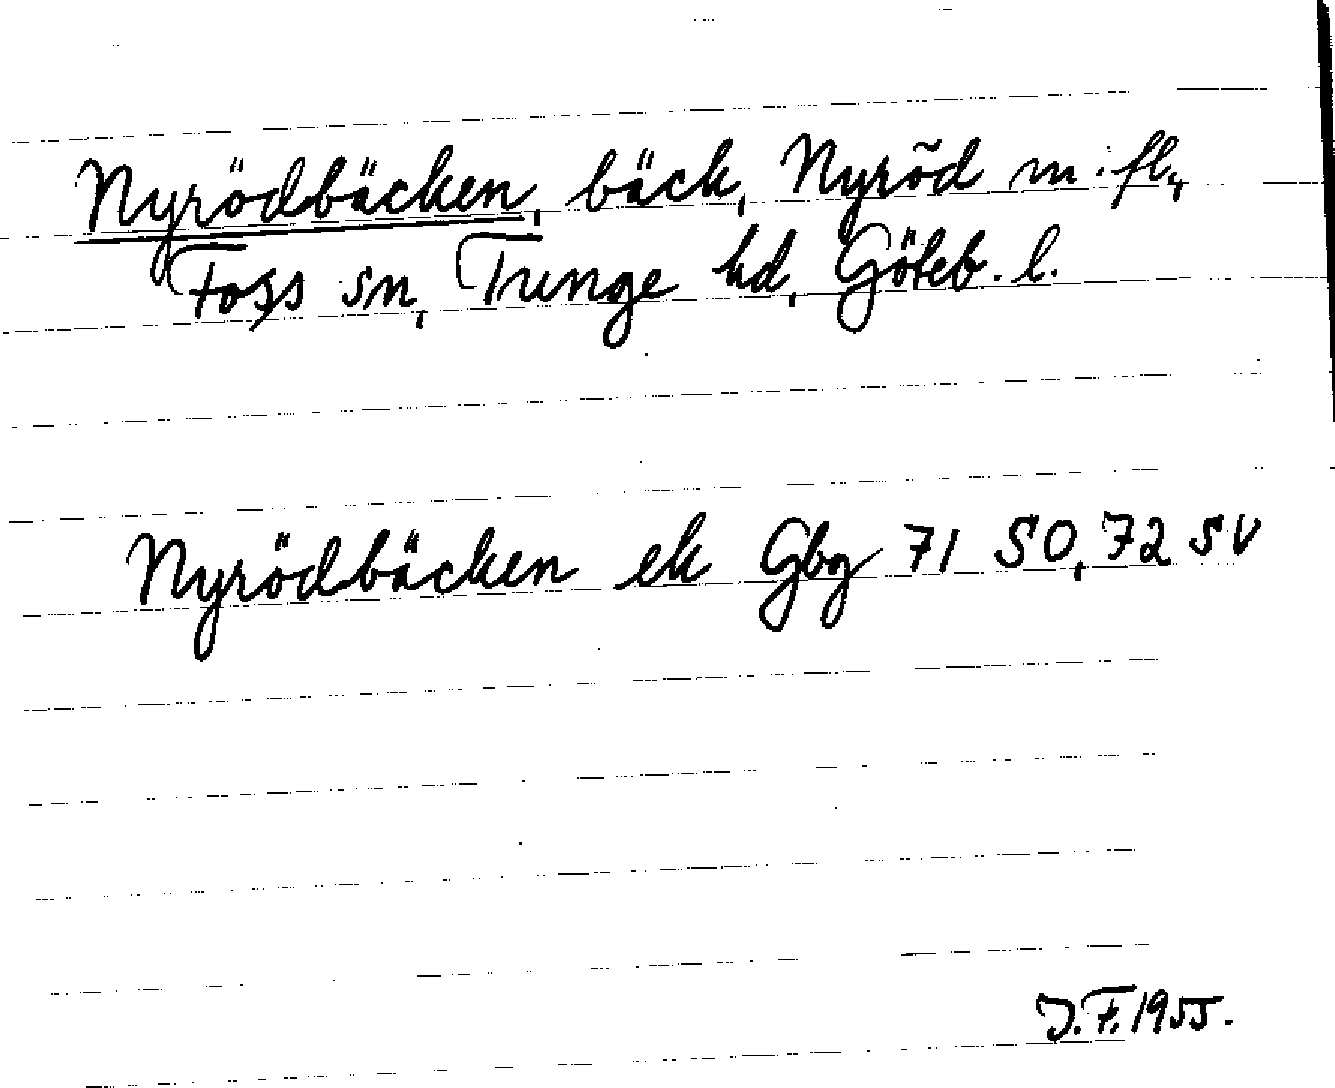 Nyrödbäcken, bäck, Nyröd m. fl.,
Foss sn, Tunge hd, Göteb. l.
Nyrödbäcken ek Gbg 71 SO, 72 SV
J.F. 1955.